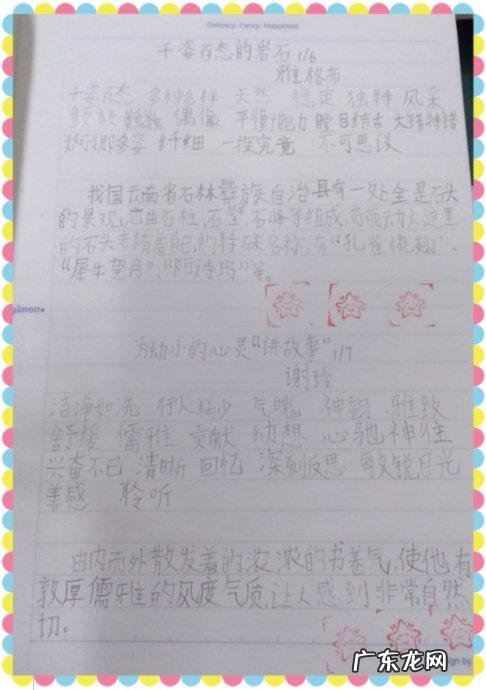 Delicacy, Fancy, Happiness
千姿百态的岩石 1/6
雅格布
千姿百态 多种多样 天然 稳定 独特 风采
颤颤巍巍 偶像 平衡能力 瞠目结舌 大错特错
婀娜多姿 纤细 一探究竟 不可思议
我国云南省石林彝族自治县有一处全是石头
的景观,它由石柱,石壁,石峰等组成,奇丽动人,这里
的石头都有着自己的特殊名称,有“孔雀梳翅”、
“犀牛望月”、“阿诗玛”等。
为幼小的心灵“讲故事” 1/7
谢玲
洁净如洗 行人稀少 气魄 神韵 雅致
舒缓 儒雅 贡献 幼想 心驰神往
兴奋不已 清晰 回忆 深刻反思 敏锐目光
善感 聆听
由内而外散发着的浓浓的书卷气,使他有
敦厚儒雅的风度气质,让人感到非常自然
切。
广东龙网